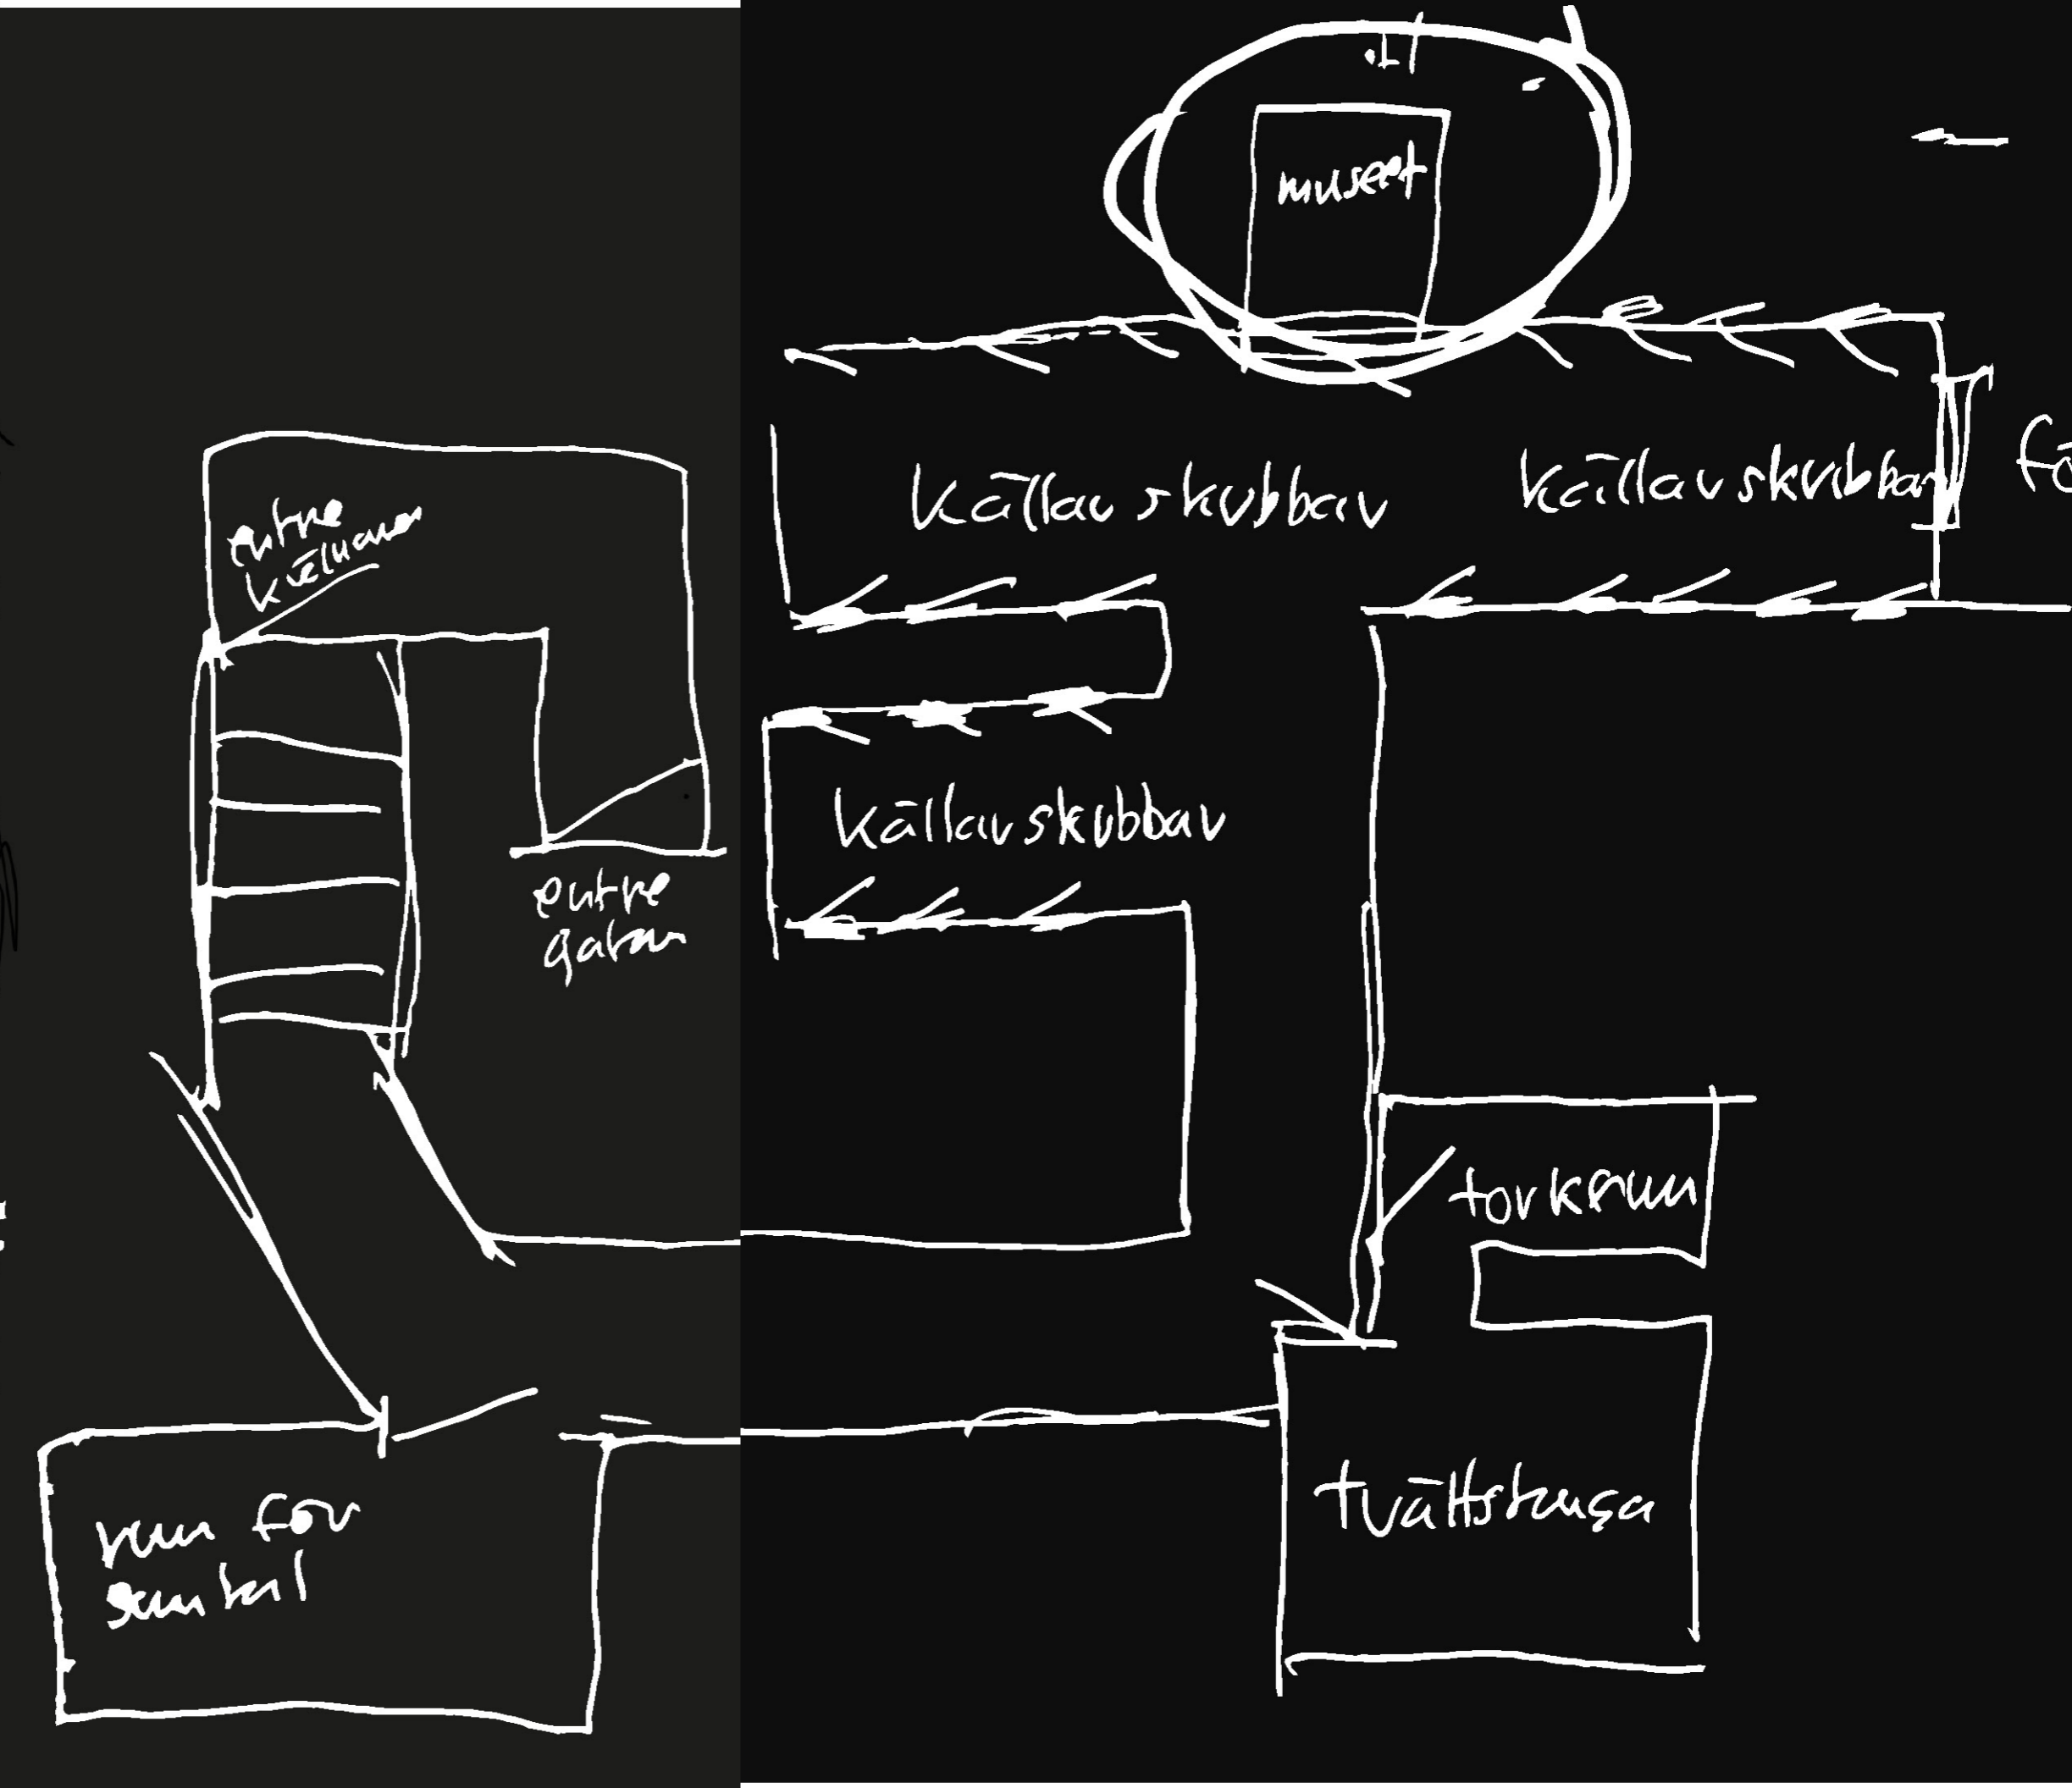 entre
källaren
entre
gatan
rum för
museet
källarskubbar
källarskubbar
fö
källarskubbar
torkrum
tvättstuga